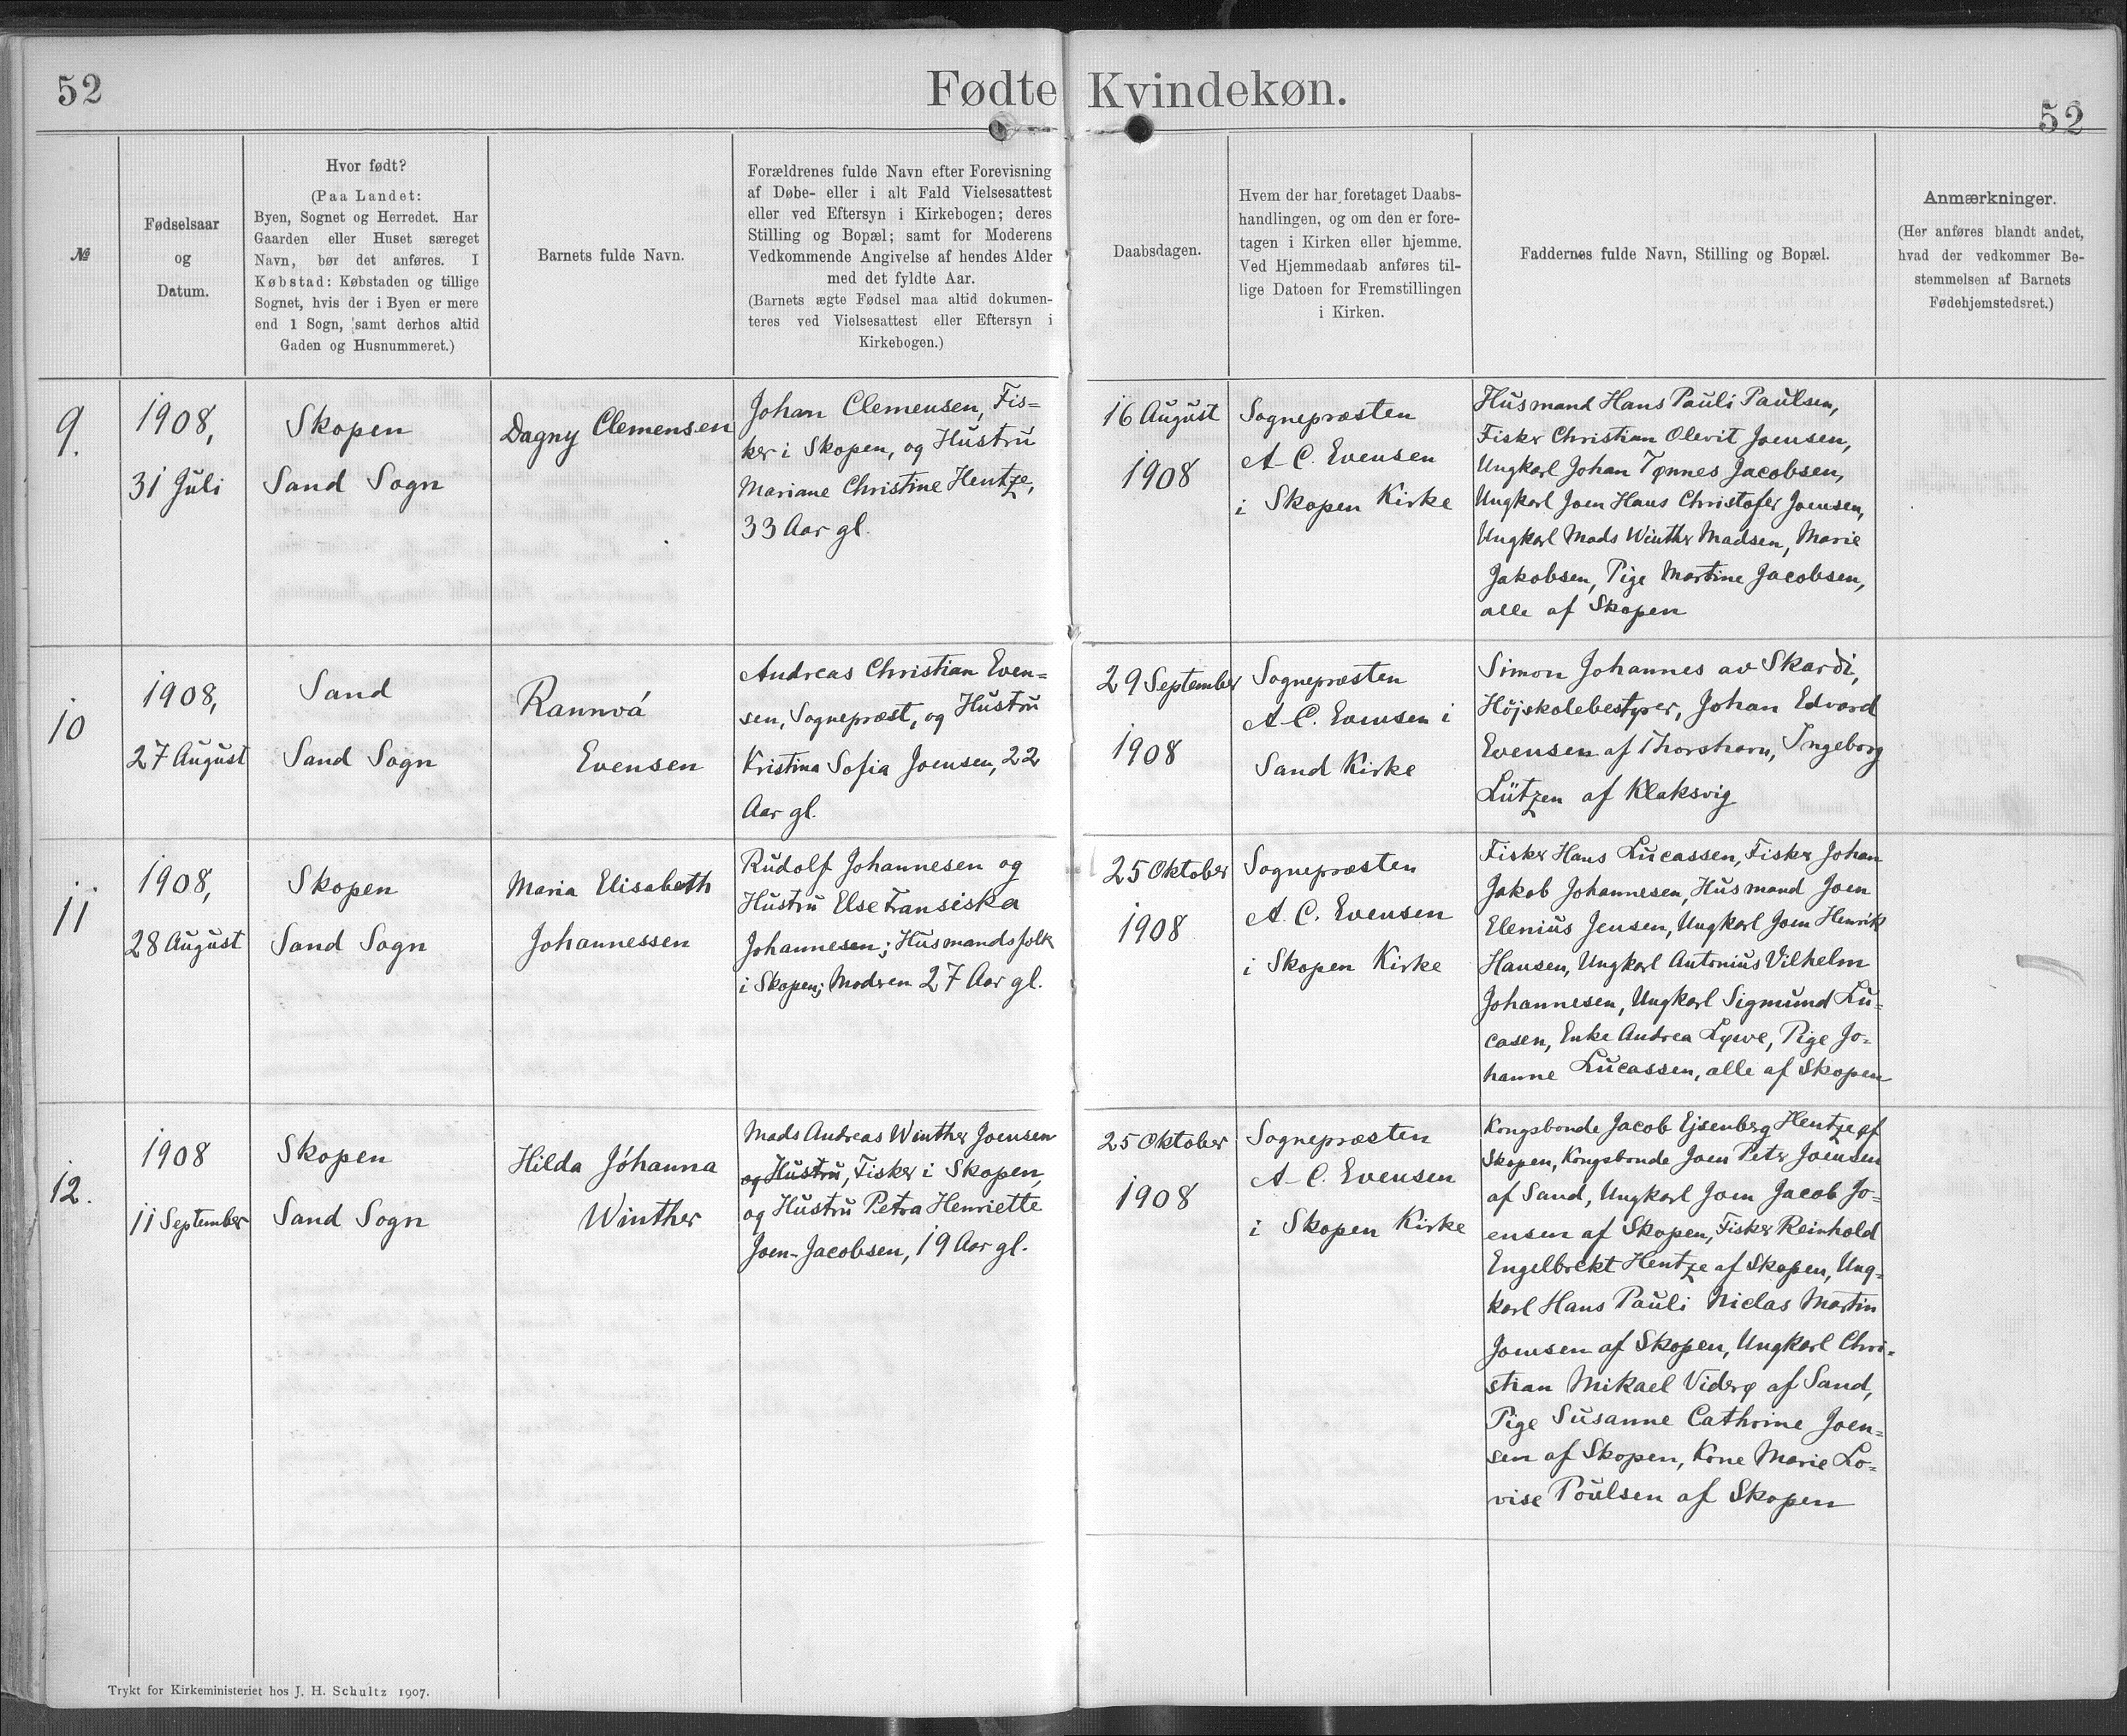 52
Fødte Kvindekøn.
52
№
Fødselsaar
og
Datum.
Hvor født?
(Paa Landet:
Byen, Sognet og Herredet. Har
Gaarden eller Huset særeget
Navn, bør det anføres. I
Købstad: Købstaden og tillige
Sognet, hvis der i Byen er mere
end 1 Sogn, samt derhos altid
Gaden og Husnummeret.)
Barnets fulde Navn.
Forældrenes fulde Navn efter Forevisning
af Døbe- eller i alt Fald Vielsesattest
eller ved Eftersyn i Kirkebogen; deres
Stilling og Bopæl; samt for Moderens
Vedkommende Angivelse af hendes Alder
med det fyldte Aar.
(Barnets ægte Fødsel maa altid dokumen-
teres ved Vielsesattest eller Eftersyn i
Kirkebogen.)
Daabsdagen.
Hvem der har foretaget Daabs-
handlingen, og om den er fore-
tagen i Kirken eller hjemme.
Ved Hjemmedaab anføres til-
lige Datoen for Fremstillingen
i Kirken.
Faddernes fulde Navn, Stilling og Bopæl.
Anmærkninger.
(Her anføres blandt andet,
hvad der vedkommer Be-
stemmelsen af Barnets
Fødehjemstedsret.)
9.
1908,
31 Juli
Skopen
Sand Sogn
Dagny Clemensen
Johan Clemensen, Fis=
ker i Skopen, og Hustru
Mariane Christine Hentze,
33 Aar gl.
16 August
1908
Sognepræsten
A. C. Evensen
i Skopen Kirke
Husmand Hans Pauli Paulsen,
Fisker Christian Olevit Joensen,
Ungkarl Johan Tønnes Jacobsen,
Ungkarl Joen Hans Christofer Joensen,
Ungkarl Mads Winther Madsen, Marie
Jakobsen, Pige Martine Jacobsen,
alle af Skopen
10
1908,
27 August
Sand
Sand Sogn
Rannvá
Evensen
Andreas Christian Even=
sen, Sognepræst, og Hustru
Kristina Sofia Joensen, 22
Aar gl.
29 September
1908
Sognepræsten
A. C. Evensen i
Sand Kirke
Simon Johannes av Skarði,
Højskolebestyrer, Johan Edvard
Evensen af Thorshavn, Ingeborg
Lützen af Klaksvig
11
1908,
28 August
Skopen
Sand Sogn
Maria Elisabeth
Johannessen
Rudolf Johannesen og
Hustru Else Fransiska
Johannesen; Husmandsfolk
i Skopen; Modren 27 Aar gl.
25 Oktober
1908
Sognepræsten
A. C. Evensen
i Skopen Kirke
Fisker Hans Lucassen, Fisker Johan
Jakob Johannesen, Husmand Joen
Elenius Jensen, Ungkarl Joen Henrik
Hansen, Ungkarl Antonius Vilhelm
Johannesen, Ungkarl Sigmund Lu=
casen, Enke Andrea Løwe, Pige Jo=
hanne Lucassen, alle af Skopen
12.
1908
11 September
Skopen
Sand Sogn
Hilda Jóhanna
Winther
Mads Andreas Winther Joensen
og Hustru, Fisker i Skopen,
og Hustru Petra Henriette
Joen-Jacobsen, 19 Aar gl.
25 Oktober
1908
Sognepræsten
A. C. Evensen
i Skopen Kirke
Kongsbonde Jacob Ejsenberg Hentze af
Skopen, Kongsbonde Joen Peter Joensen
af Sand, Ungkarl Joen Jacob Jo=
ensen af Skopen, Fisker Reinhold
Engelbrekt Hentze af Skopen, Ung=
karl Hans Pauli Niclas Martin
Joensen af Skopen, Ungkarl Chri=
stian Mikael Viderø af Sand,
Pige Susanne Cathrine Joen=
sen af Skopen, Kone Marie Lo=
vise Poulsen af Skopen
Trykt for Kirkeministeriet hos J. H. Schultz 1907.